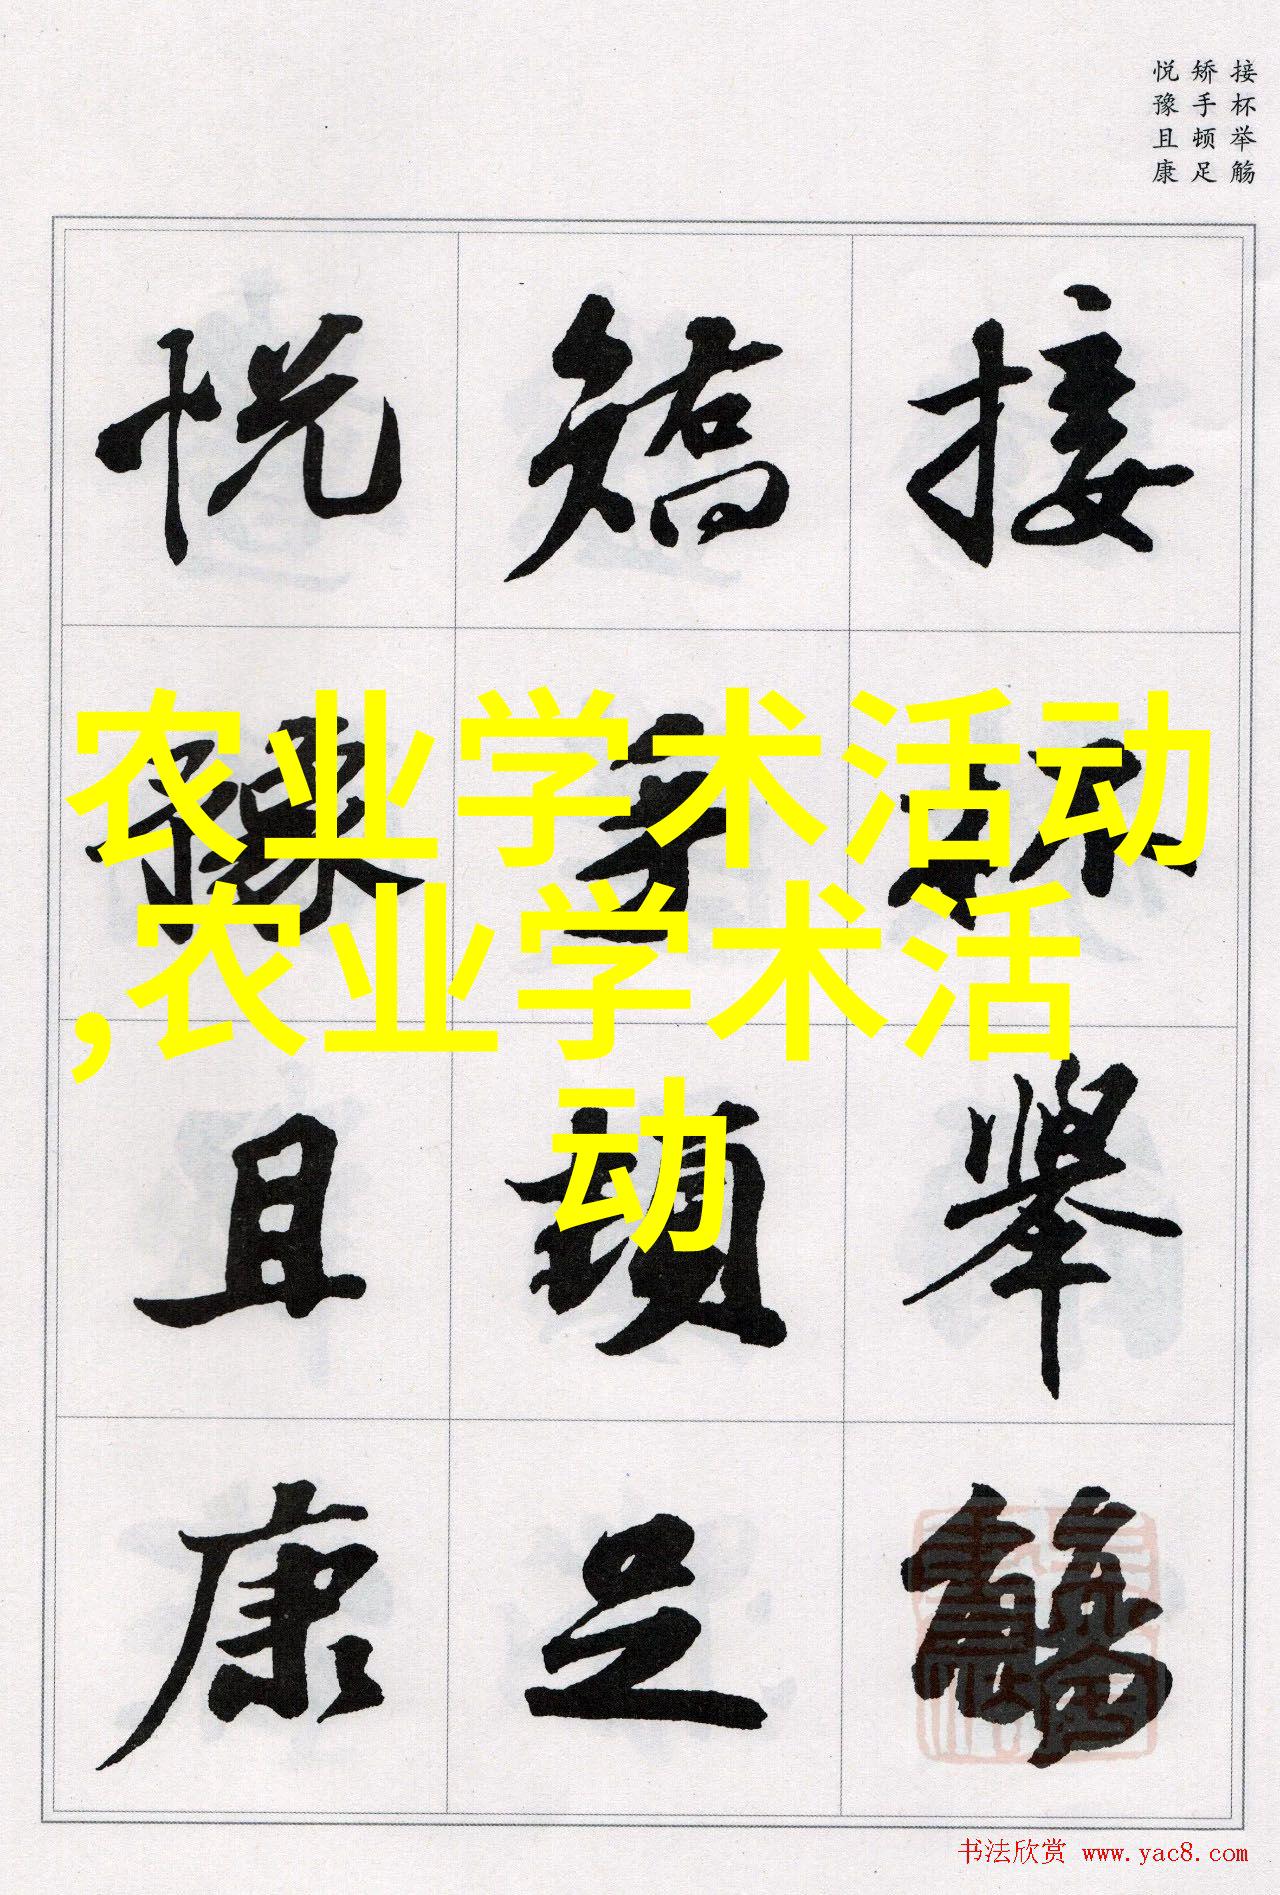 接杯举觞
矫手顿足
悦豫且康
接杯举觞
矫手顿足
悦豫且康
农业学术活动
,农业学术活
动
书法欣赏 www.yac8.com